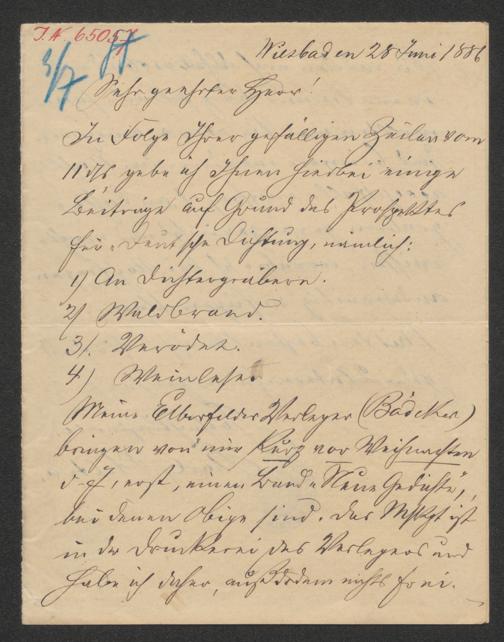 I.N. 65057
3/7
Wiesbaden 28 Juni 1886
Sehr geehrter Herr!
In Folge Ihrer gefälligen Zeilen vom
gebe ich Ihnen hierbei einige
Beiträge auf Grund des Prospektes
für „Deutsche Dichtung", nämlich:
1) An Dichtergräbern.
2) Waldbrand.
3). Verödet.
4) Weinlese.
Meine Elberfelder Verleger (Bädeker)
bringen von mir kurz vor Weihnachten
d. J., erst, einen Band „Neue Gedichte",
bei denen Obige sind. Das Mskpt ist
in der Druckerei des Verlegers und
habe ich daher, außerdem nichts frei.